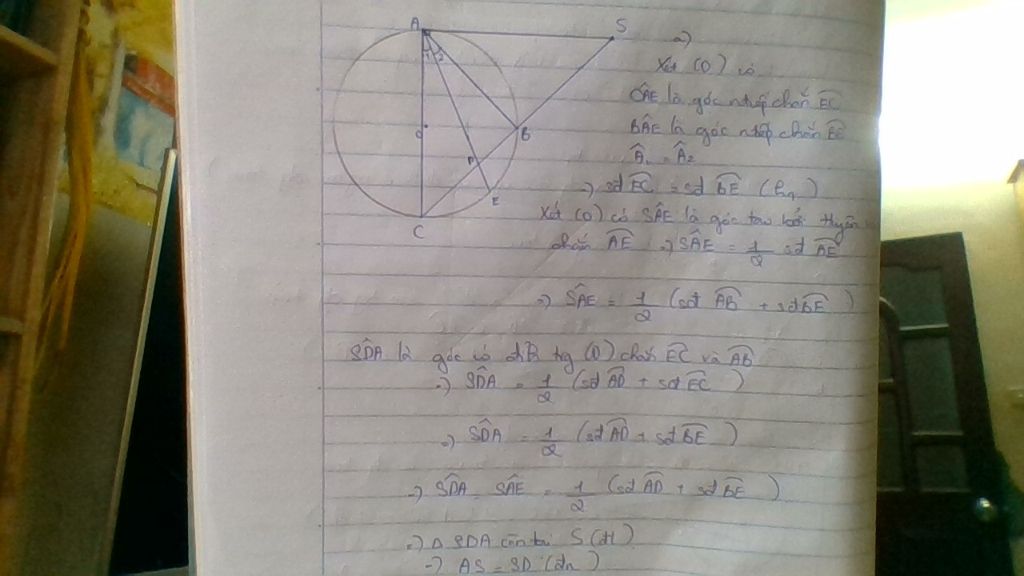 A
S
1 2
O
B
D
E
C
a)
Xét (O) có
CÂE là góc ntiếp chắn EC
BÂE là góc ntiếp chắn BE
Â1 = Â2
=> sđ EC = sđ BE (hq)
Xét (O) có SÂE là góc tạo bởi tiếp tuyến
chắn AE => SÂE = 1/2 sđ AE
=> SÂE = 1/2 (sđ AB + sđ BE)
SD̂A là góc có đỉnh trg (O) chắn EC và AB
=> SD̂A = 1/2 (sđ AD + sđ EC)
=> SD̂A = 1/2 (sđ AD + sđ BE)
=> SD̂A = SÂE = 1/2 (sđ AD + sđ BE)
=> Δ SDA cân tại S (đl)
=> AS = SD (đn)